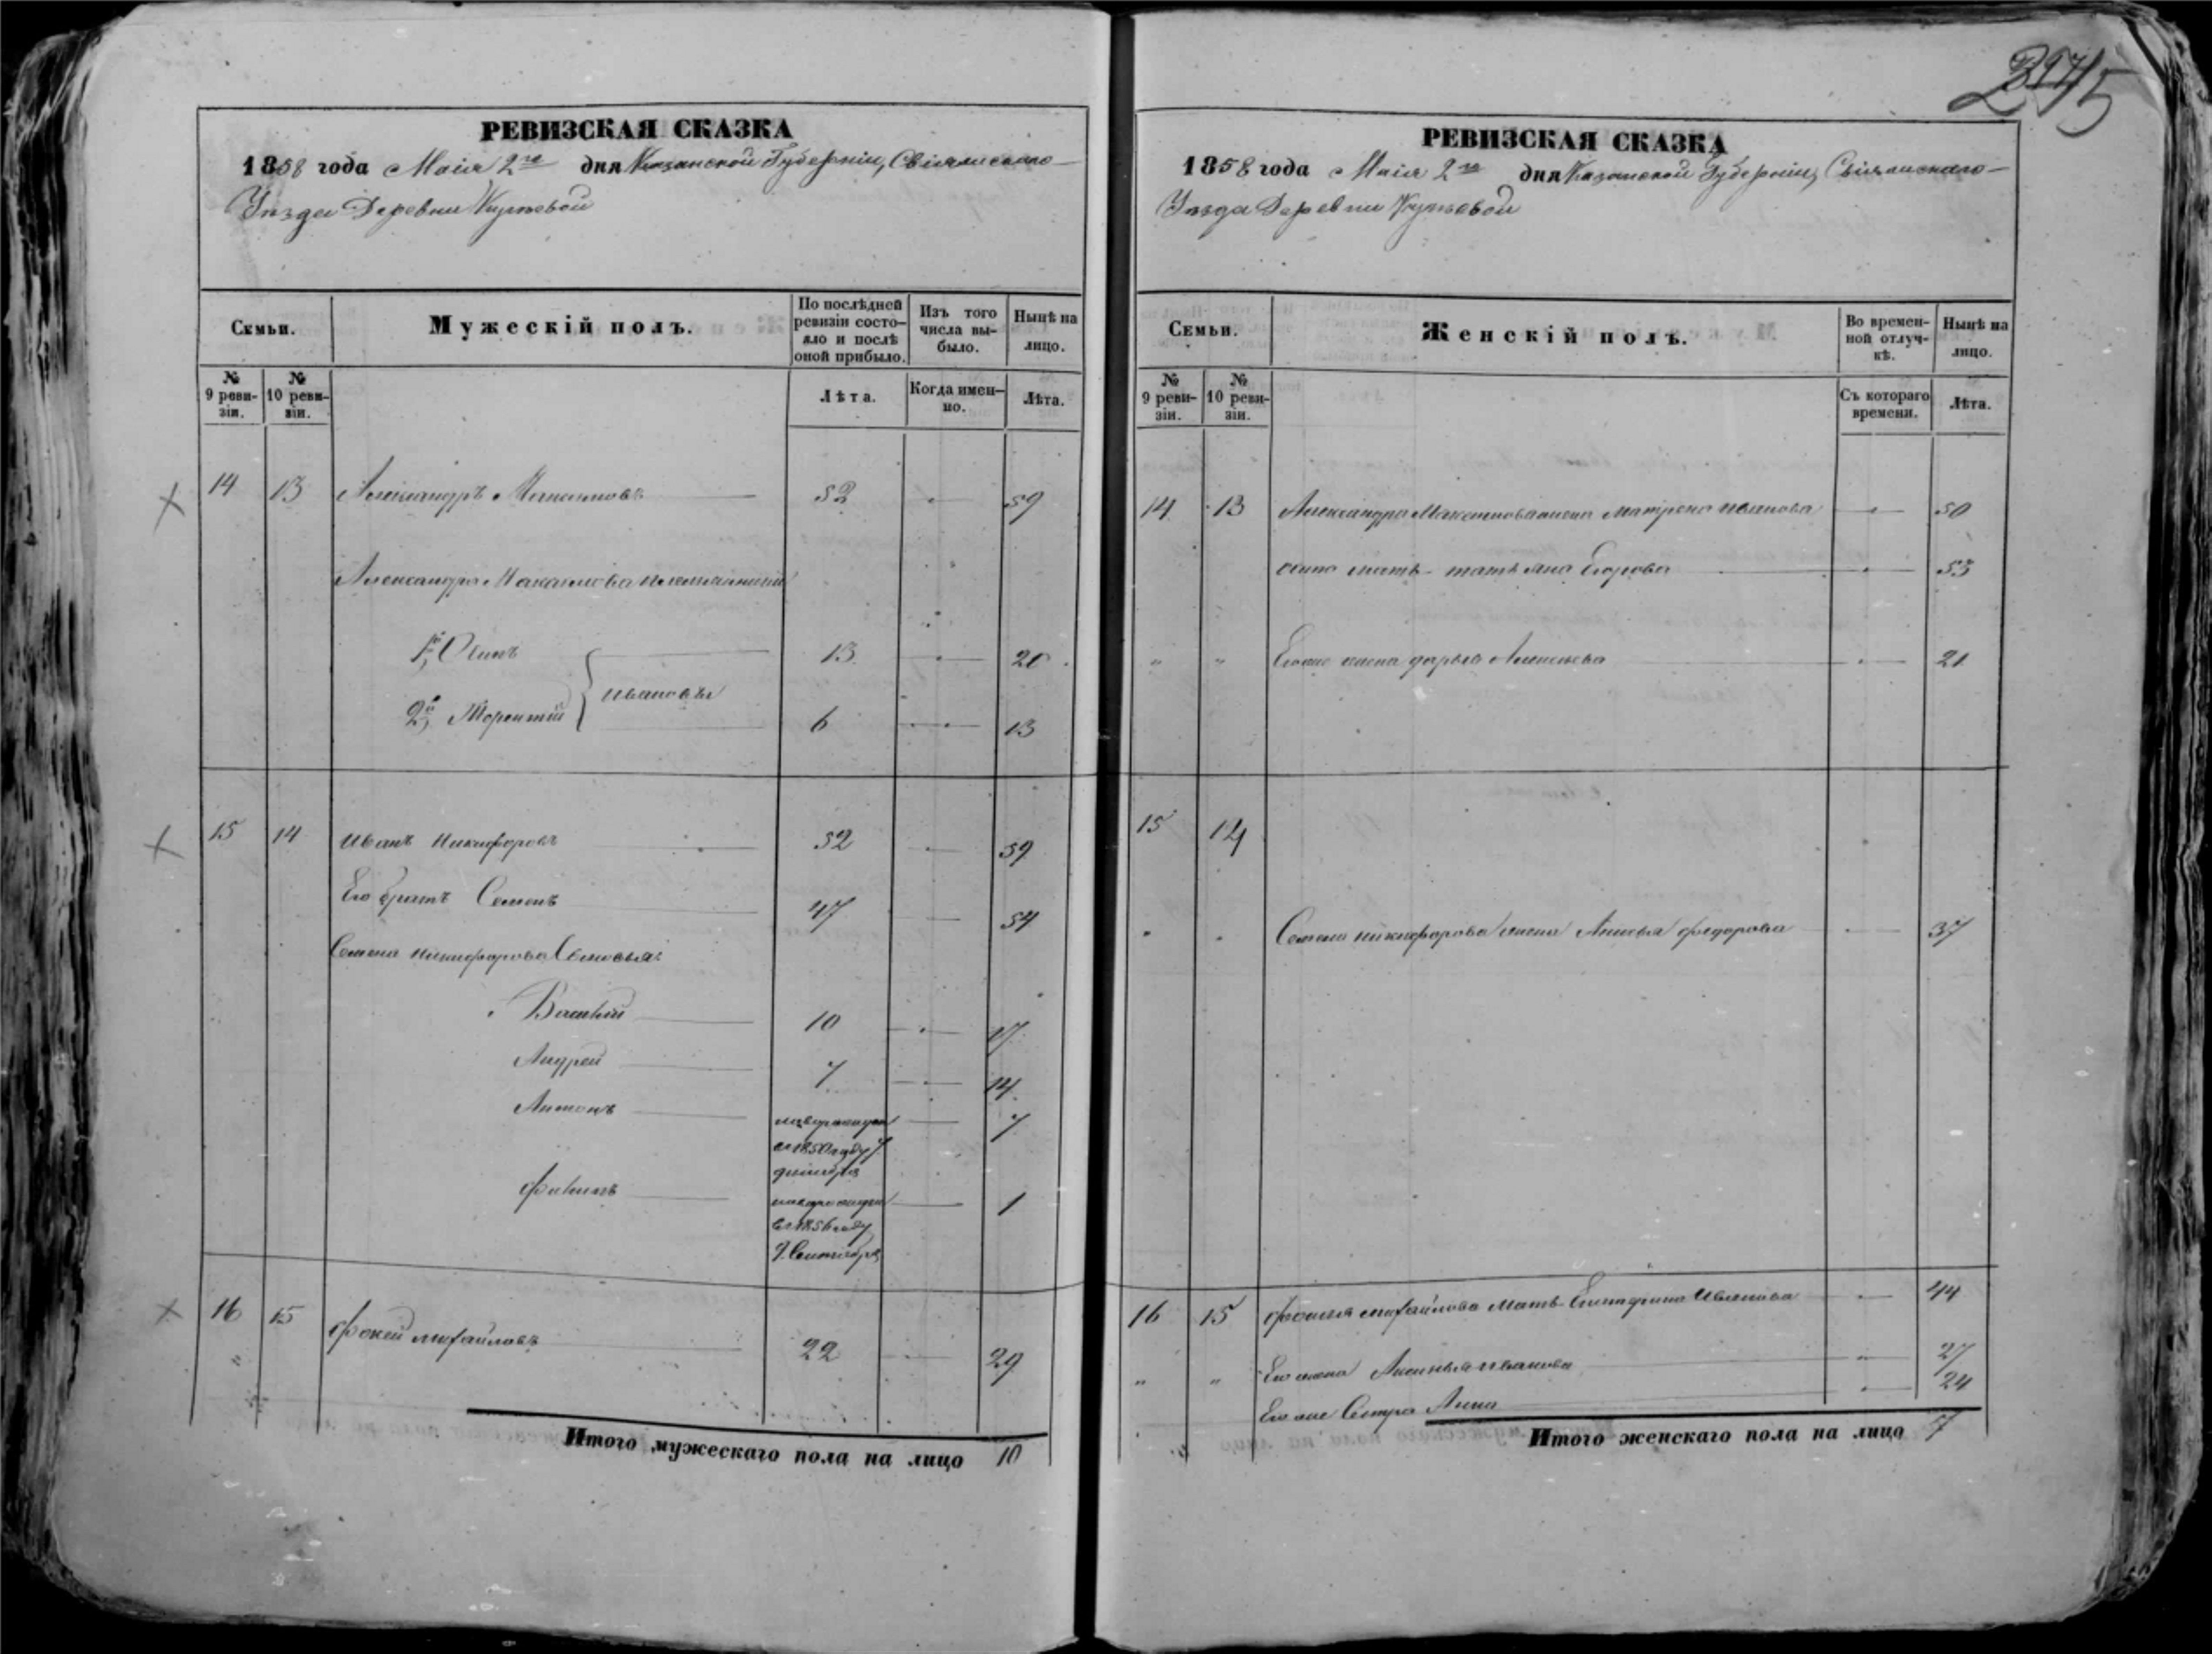 РЕВИЗСКАЯ СКАЗКА
1858 года Маія 2го дня Казанской Губерніи, Свіяжскаго
Уѣзда Деревни
Семьи.
Мужескій полъ.
По послѣдней ревизіи состо-
яло и послѣ
оной прибыло.
Изъ того
числа вы-
было.
Нынѣ на
лицо.
№
9 реви-
зіи.
№
10 реви-
зіи.
Лѣта.
Когда имен-
но.
Лѣта.
14 13 Александръ 52 59
Александра племянники
1й Осипъ 13 20
Ивановы
2й 6 13
15 14 Иванъ Никифоровъ 52 59
Его братъ Семенъ 47 54
Семена Никифорова Сыновья:
Василій 10 17
Андрей 7 14
Антонъ 7
въ 1850 году 7
Филипъ 1
въ 1856 году
Сентября
16 15 Фокей Михайловъ 22 29
Итого мужескаго пола на лицо 10
РЕВИЗСКАЯ СКАЗКА
1858 года Маія 2го дня Казанской Губерніи, Свіяжскаго
Уѣзда Деревни
Семьи.
Женскій полъ.
Во времен-
ной отлуч-
кѣ.
Нынѣ на
лицо.
№
9 реви-
зіи.
№
10 реви-
зіи.
Съ котораго
времени.
Лѣта.
14 13 Александра жена Матрена Иванова 50
Осипа мать Татьяна Егорова 53
" " Его же жена Дарья Алексѣева 21
15 14
Семена Никифорова жена Федорова 37
16 15 Фокея Михайлова Мать Екатерина Иванова 44
" " Его жена Аксинья Иванова 27
Его же Сестра Анна 24
Итого женскаго пола на лицо 7